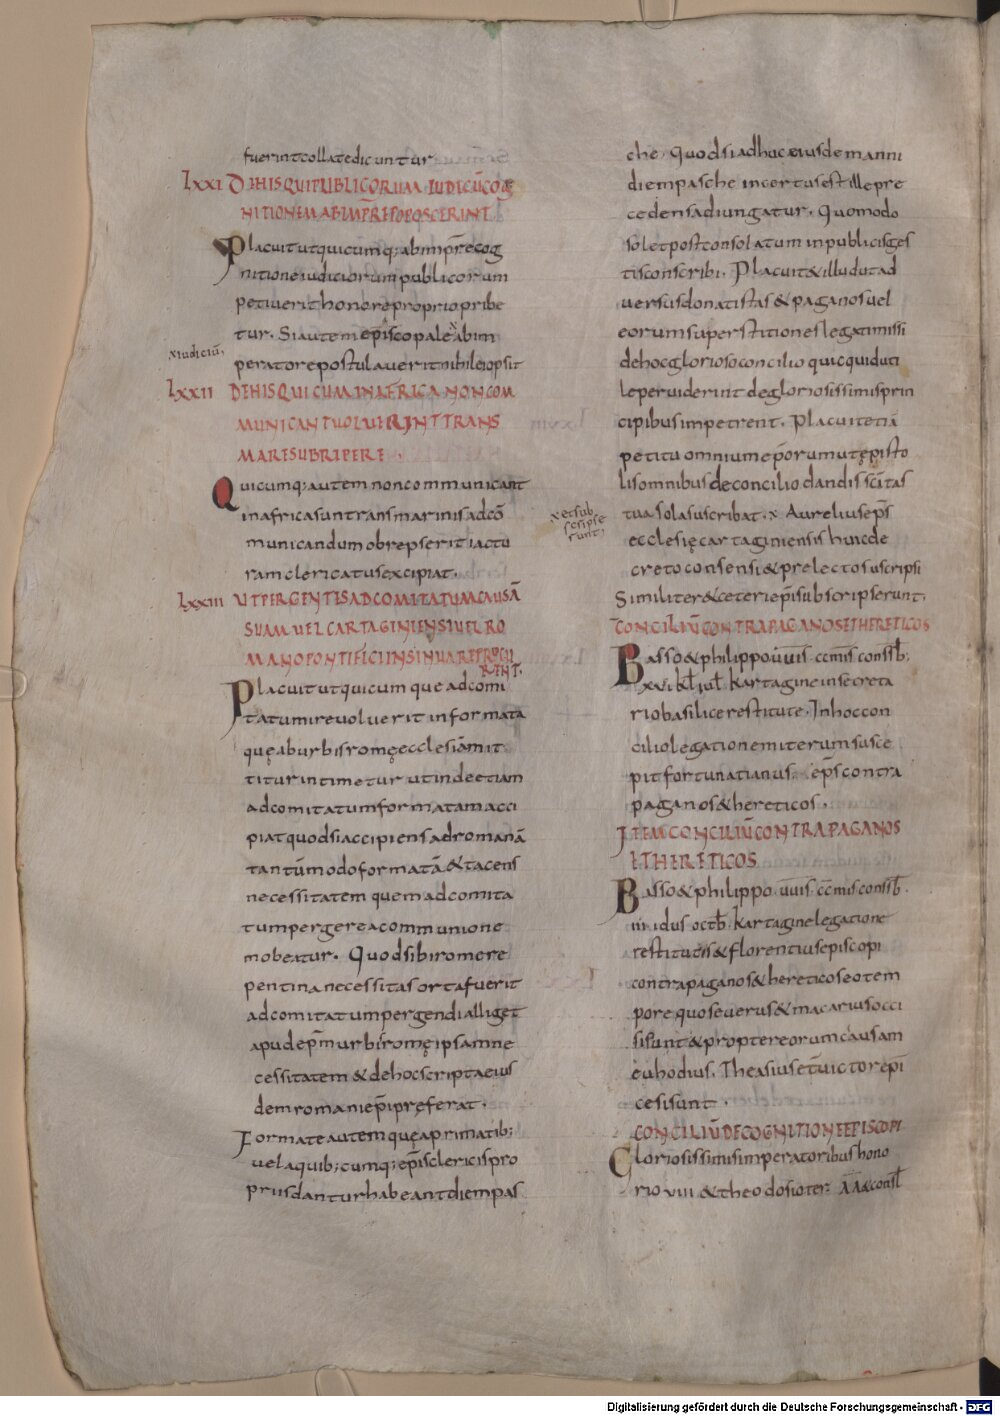 fuerint collate dicuntur
lxxi DE HIS QUI PUBLICORUM IUDICIŪ COG
NITIONEM AB IMP̄RE POPOSCERINT
Placuit ut quicumq; ab imp̄re cog
nitione iudiciorum publicorum
petiuerit honore proprio pribe
tur. Si autem episcopale ab im
x iudiciū,
peratore postulauerit nihil ei opsit
lxxii DE HIS QUI CUM IN AFRICA NON COM
MUNICANT UOLUERINT TRANS
MARE SUBRIPERE.
Quicumq; autem non communicant
in africa sun transmarinis ad cō
municandum obrepserit iactu
ram clericatus excipiat.
lxxiii UT PERGENTES AD COMITATUM CAUSĀ
SUAM UEL CARTAGINIENSI UEL RO
MANO PONTIFICI INSINUARE PROCU
RENT.
Placuit ut quicumque ad comi
tatum ire uoluerit in formata
quę ab urbis romę ecclesiā mit
titur intimetur ut inde etiam
ad comitatum formatam acci
piat quod si accipiens ad romanā
tantūmodo formatā & tacens
necessitatem quem ad comita
tum pergere a communione
mobeatur. Quod sibi rome re
pentina necessitas orta fuerit
ad comitatum pergendi alliget
apud ep̄m urbis romę ipsam ne
cessitatem & de hoc scripta eius
dem romani ep̄i pręferat.
Formate autem quę a primatib;
uel aquib;cumq; ep̄is clericis pro
priis dantur habeant diem pas
che. Quod si adhuc eiusdem anni
diem pasche incertus est ille pre
cedens adiungatur. Quomodo
solet post consolatum in publicis ges
tis conscribi. Placuit & illud ut ad
uersus donatistas & paganos uel
eorum superstitiones legati missi
de hoc glorioso concilio quicquid uti
le peruiderint de gloriosissimis prin
cipibus impetrent. Placuit etiā
petitu omnium ep̄orum ut ępisto
lis omnibus de concilio dandis scītas
tua sola suscribat. x Aurelius ep̄s
x et sub
scripse
runt;
ecclesię cartaginiensis huic de
creto consensi & prelecto suscripsi
Similiter & ceteri ep̄i subscripserunt.
CONCILIŪ CONTRA PAGANOS ET HERETICOS
Basso & philippo uūis. cc̄mis conss̄b;
xvi kl̄ iul̄. kartagine in secreta
rio basilice restitute. In hoc con
cilio legationem iterum susce
pit fortunatianus ep̄s contra
paganos & hereticos.
ITEM CONCILIŪ CONTRA PAGANOS
ET HERETICOS
Basso & philippo. uūis. cc̄mis conss̄b.
iii. idus oct̄b. kartagine legatione
restitutis & florentius episcopi
contra paganos & hereticos eo tem
pore quo seuerus & macarius occi
si sunt & propter eorum causam
euhodius. Theasius et uictor ep̄i
cesi sunt.
CONCILIŪ DE COGNITIONE EPISCOPI
Gloriosissimis imperatoribus hono
rio viii & theodosio ter: ĀĀ& consl̄
Digitalisierung gefördert durch die Deutsche Forschungsgemeinschaft - DFG